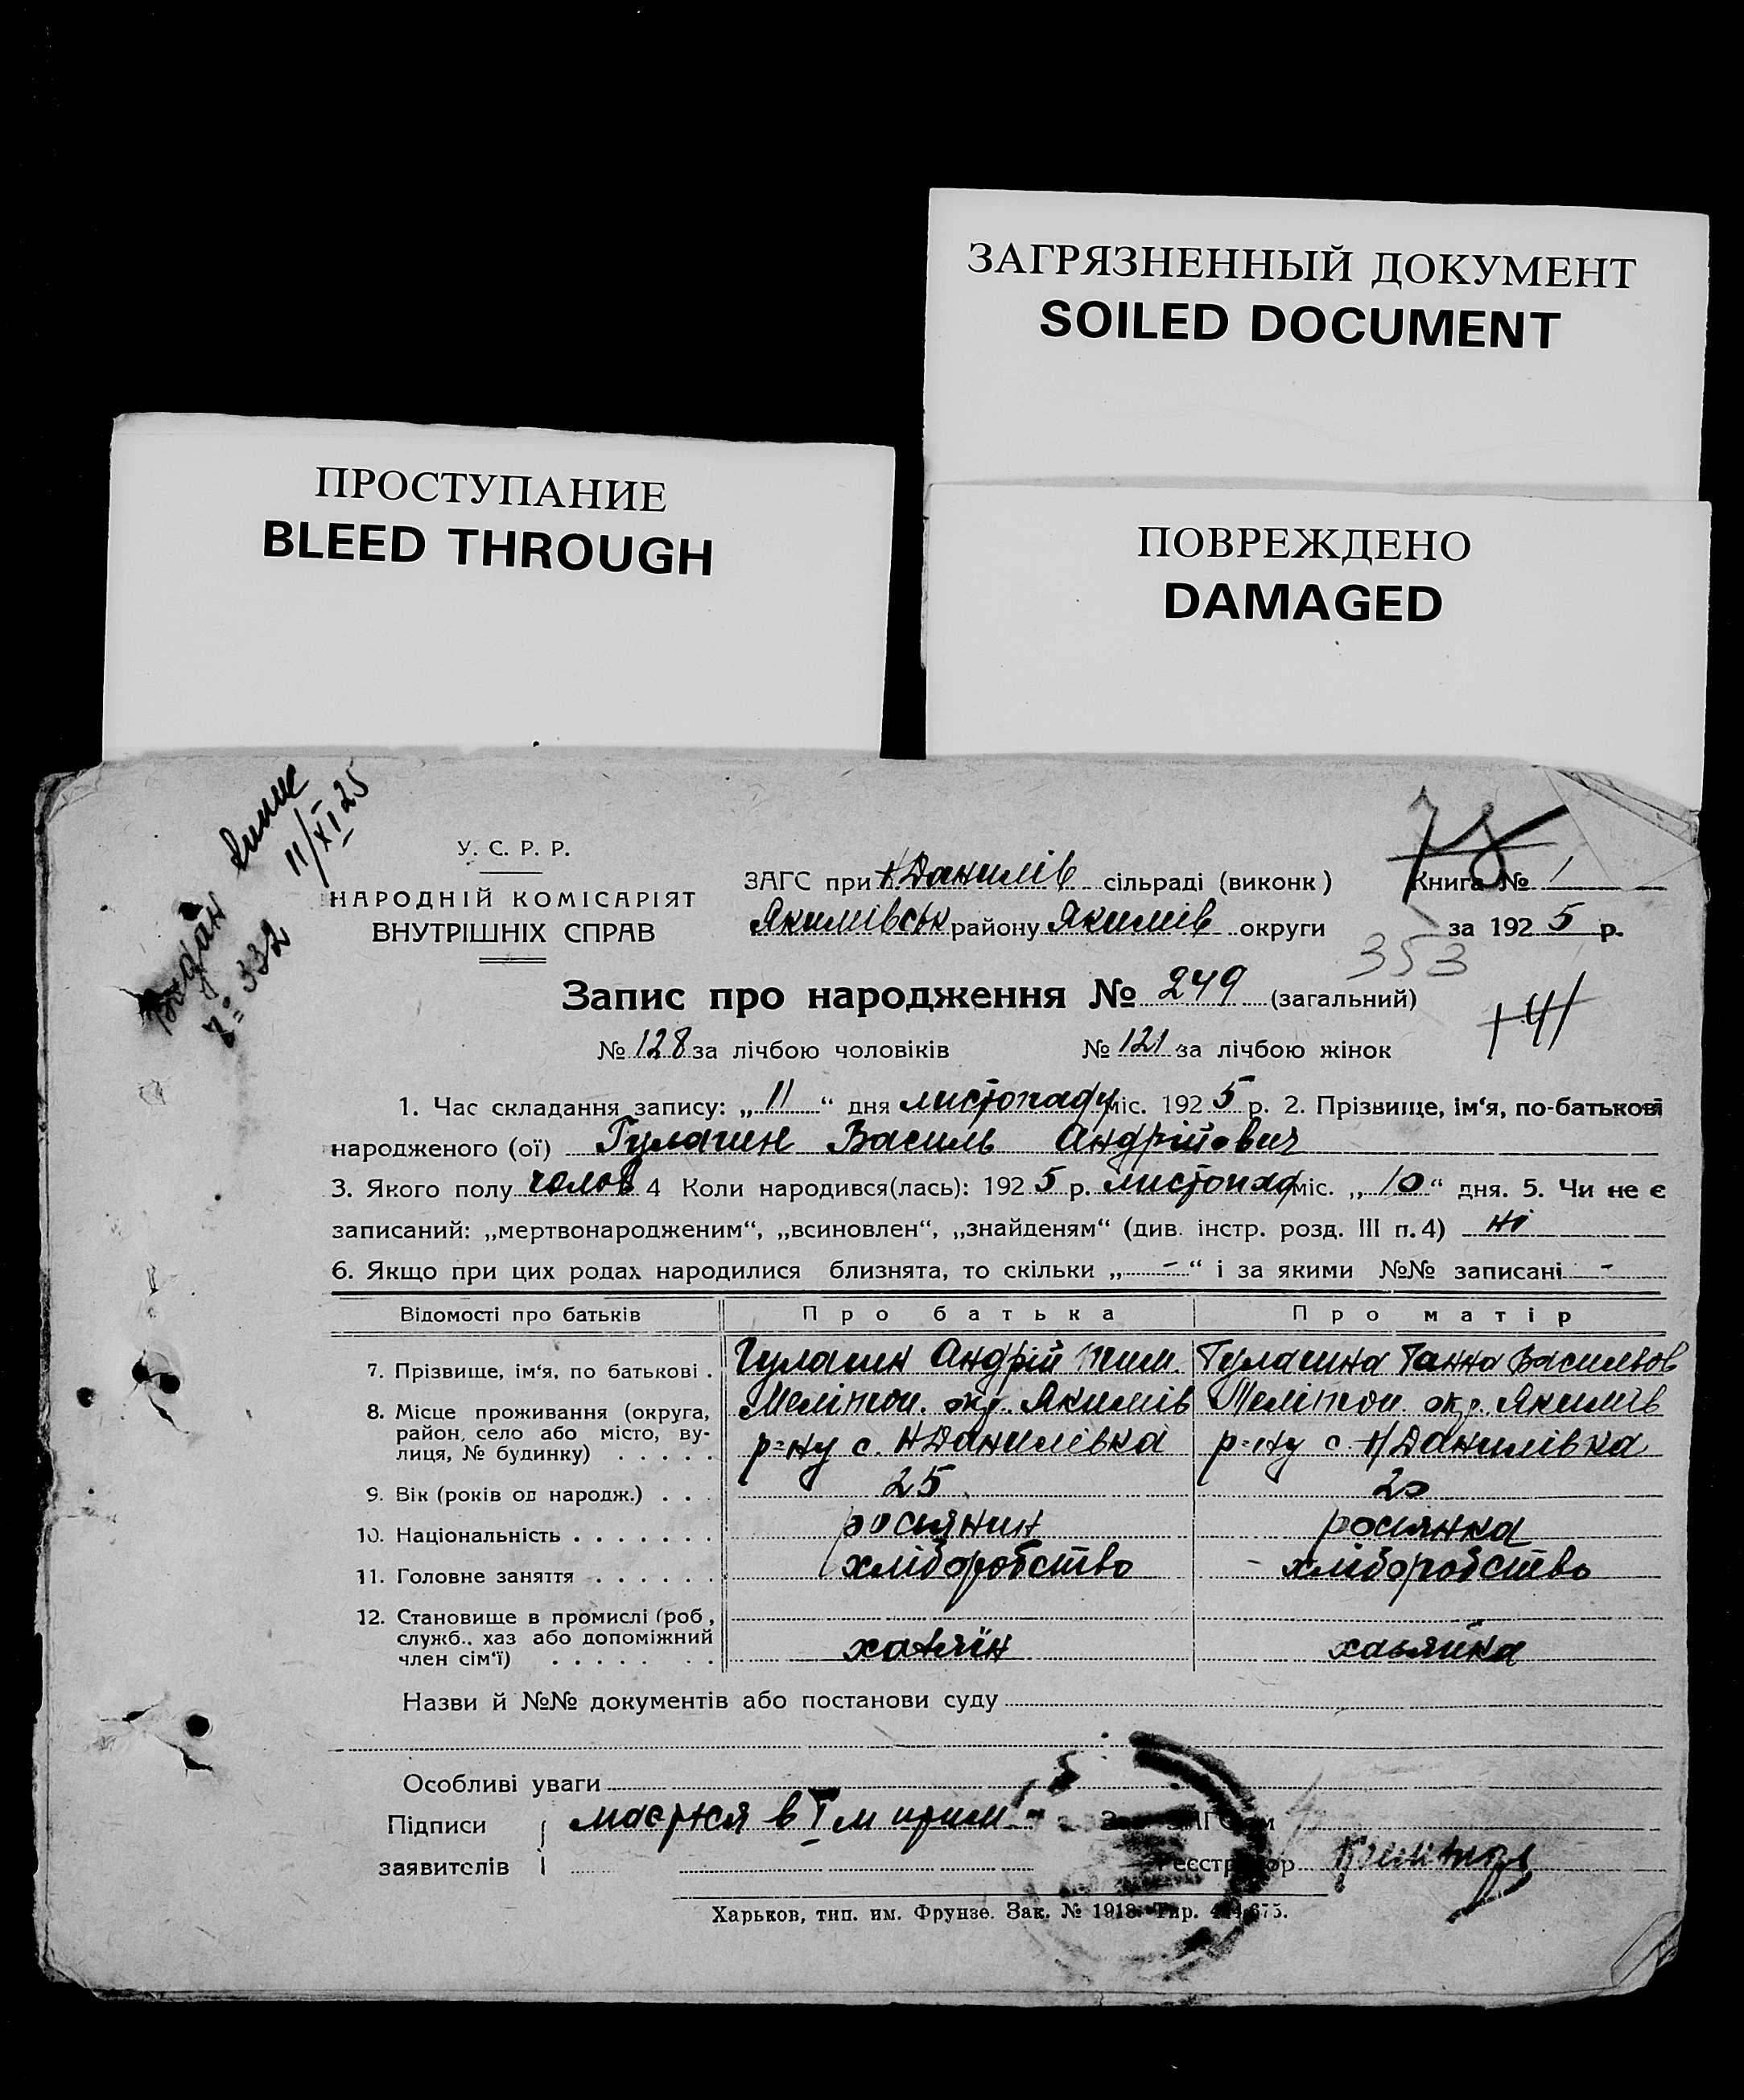 ЗАГРЯЗНЕННЫЙ ДОКУМЕНТ
SOILED DOCUMENT
ПРОСТУПАНИЕ
BLEED THROUGH
ПОВРЕЖДЕНО
DAMAGED
Видан випис
№ 332 11/XI 25
У. С. Р. Р.
НАРОДНІЙ КОМІСАРІЯТ
ВНУТРІШНІХ СПРАВ
ЗАГС при НДанилів сільраді (виконк) Книга № 1
Якимівськ району Якимів округи за 1925 р.
353
Запис про народження № 249 (загальний)
141
№ 128 за лічбою чоловіків № 121 за лічбою жінок
1. Час складання запису: „11“ дня листопаду міс. 1925 р. 2. Прізвище, ім‘я, по-батькові
народженого (ої) Гулагин Василь Андрійович
3. Якого полу чолов 4 Коли народився(лась): 1925 р. листопад міс. „10“ дня. 5. Чи не є
записаний: „мертвонародженим“, „всиновлен“, „знайденям“ (див. інстр. розд. III п. 4) ні
6. Якщо при цих родах народилися близнята, то скільки „-“ і за якими №№ записані -
Відомості про батьків Про батька Про матір
7. Прізвище, ім‘я, по батькові . Гулагин Андрій Тим. Гулагина Ганна Васильов
8. Місце проживання (округа, Мелітоп. окр. Якимів Мелітоп. окр. Якимів
район, село або місто, ву- р=ну с. НДанилівка р=ну с. Н/Данилівка
лиця, № будинку) . . . . .
9. Вік (років од народж.) . . . 25 20
10. Національність . . . . . . . росіянин росіянка
11. Головне заняття . . . . . . хліборобство - хліборобство
12. Становище в промислі (роб,
служб., хаз або допоміжний
член сім‘ї) . . . . . . . хазяїн хазяйка
Назви й №№ документів або постанови суду
Особливі уваги
Підписи мається в І м прим. Зав. ЗАГСом
заявителів Реєстратор
Харьков, тип. им. Фрунзе. Зак. № 1918. Тир.